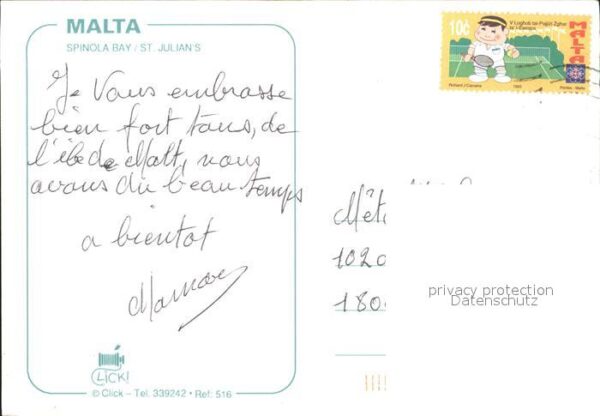 MALTA
SPINOLA BAY / ST. JULIAN'S
Je Vous embrasse
bien fort tous, de
l'île de Malt, nous
avons du beau temps
a bientot
10c
V Logħob tal-Pajjiżi Żgħar
ta' l-Ewropa
MALTA
1993
Mét
1020
180
privacy protection
Datenschutz
CLICK!
© Click – Tel. 339242 • Ref: 516